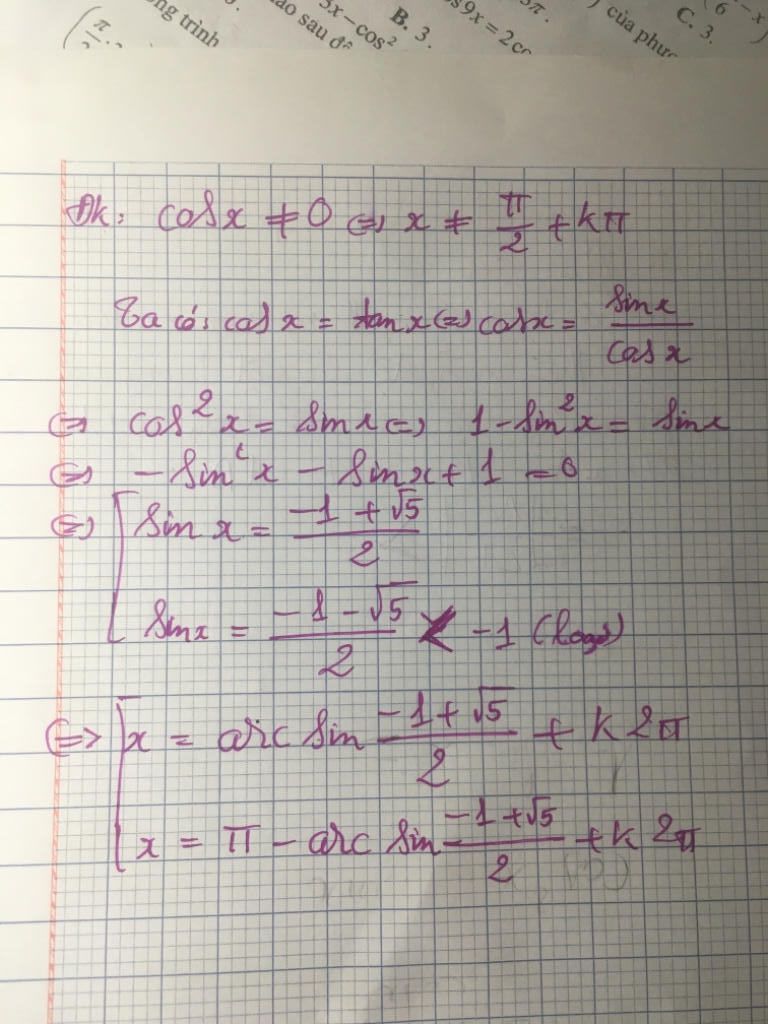 ng trình
ào sau đâ
5x – cos²
B. 3.
s9x = 2co
5π.
) của phươ
C. 3.
6 - x)
(π/2;
Đk: cosx ≠ 0 ⇔ x ≠ π/2 + kπ
Ta có: cosx = tanx ⇔ cosx = sinx/cosx
⇔ cos²x = sinx ⇔ 1 - sin²x = sinx
⇔ - sin²x - sinx + 1 = 0
⇔ [ sinx = (-1 + √5)/2
sinx = (-1 - √5)/2 < -1 (loại)
⇔ [ x = arc sin (-1 + √5)/2 + k2π
x = π - arc sin (-1 + √5)/2 + k2π